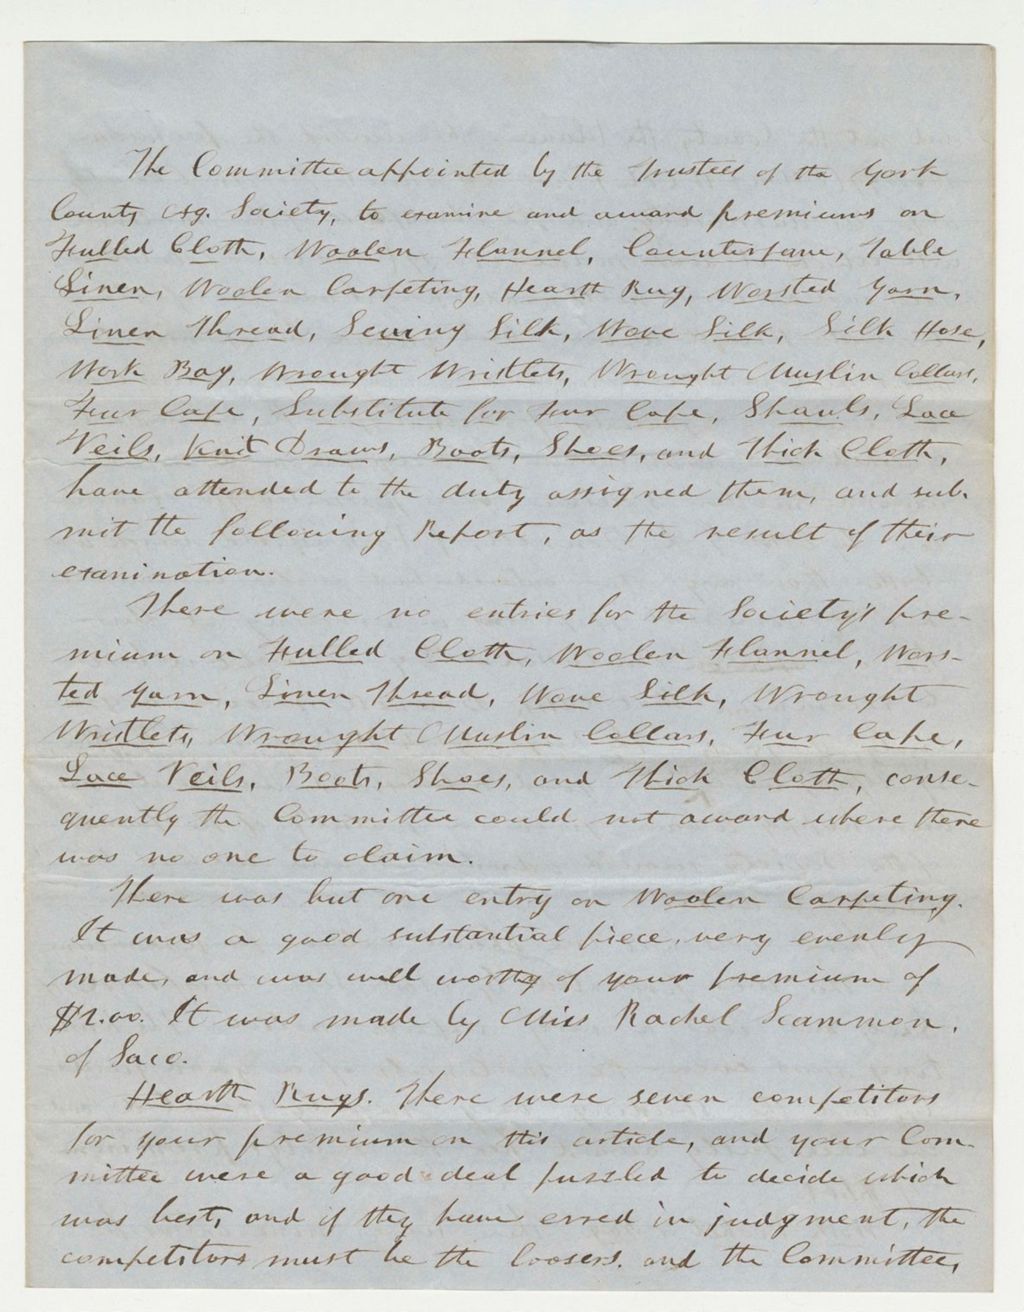 The Committee appointed by the Trustees of the York
County Ag. Society, to examine and award premiums on
Fulled Cloth, Woolen Flannel, Counterpane, Table
Linen, Woolen Carpeting, Hearth Rug, Worsted Yarn,
Linen Thread, Sewing Silk, Wove Silk, Silk Hose,
Work Bag, Wrought Wristlets, Wrought Muslin Collars,
Fur Cape, Substitute for Fur Cape, Shawls, Lace
Veils, Knit Draws, Boots, Shoes, and Thick Cloth,
have attended to the duty assigned them, and sub-
mit the following Report, as the result of their
examination.
There were no entries for the Society's pre-
mium on Fulled Cloth, Woolen Flannel, Wors-
ted Yarn, Linen Thread, Wove Silk, Wrought
Wristlets, Wrought Muslin Collars, Fur Cape,
Lace Veils, Boots, Shoes, and Thick Cloth, conse-
quently the Committee could not award where there
was no one to claim.
There was but one entry on Woolen Carpeting.
It was a good substantial piece, very evenly
made, and was well worthy of your premium of
$2.00. It was made by Miss Rachel Scammon,
of Saco.
Hearth Rugs. There were seven competitors
for your premium on this article, and your Com-
mittee were a good deal puzzled to decide which
was best, and if they have erred in judgment, the
competitors must be the loosers, and the Committee,